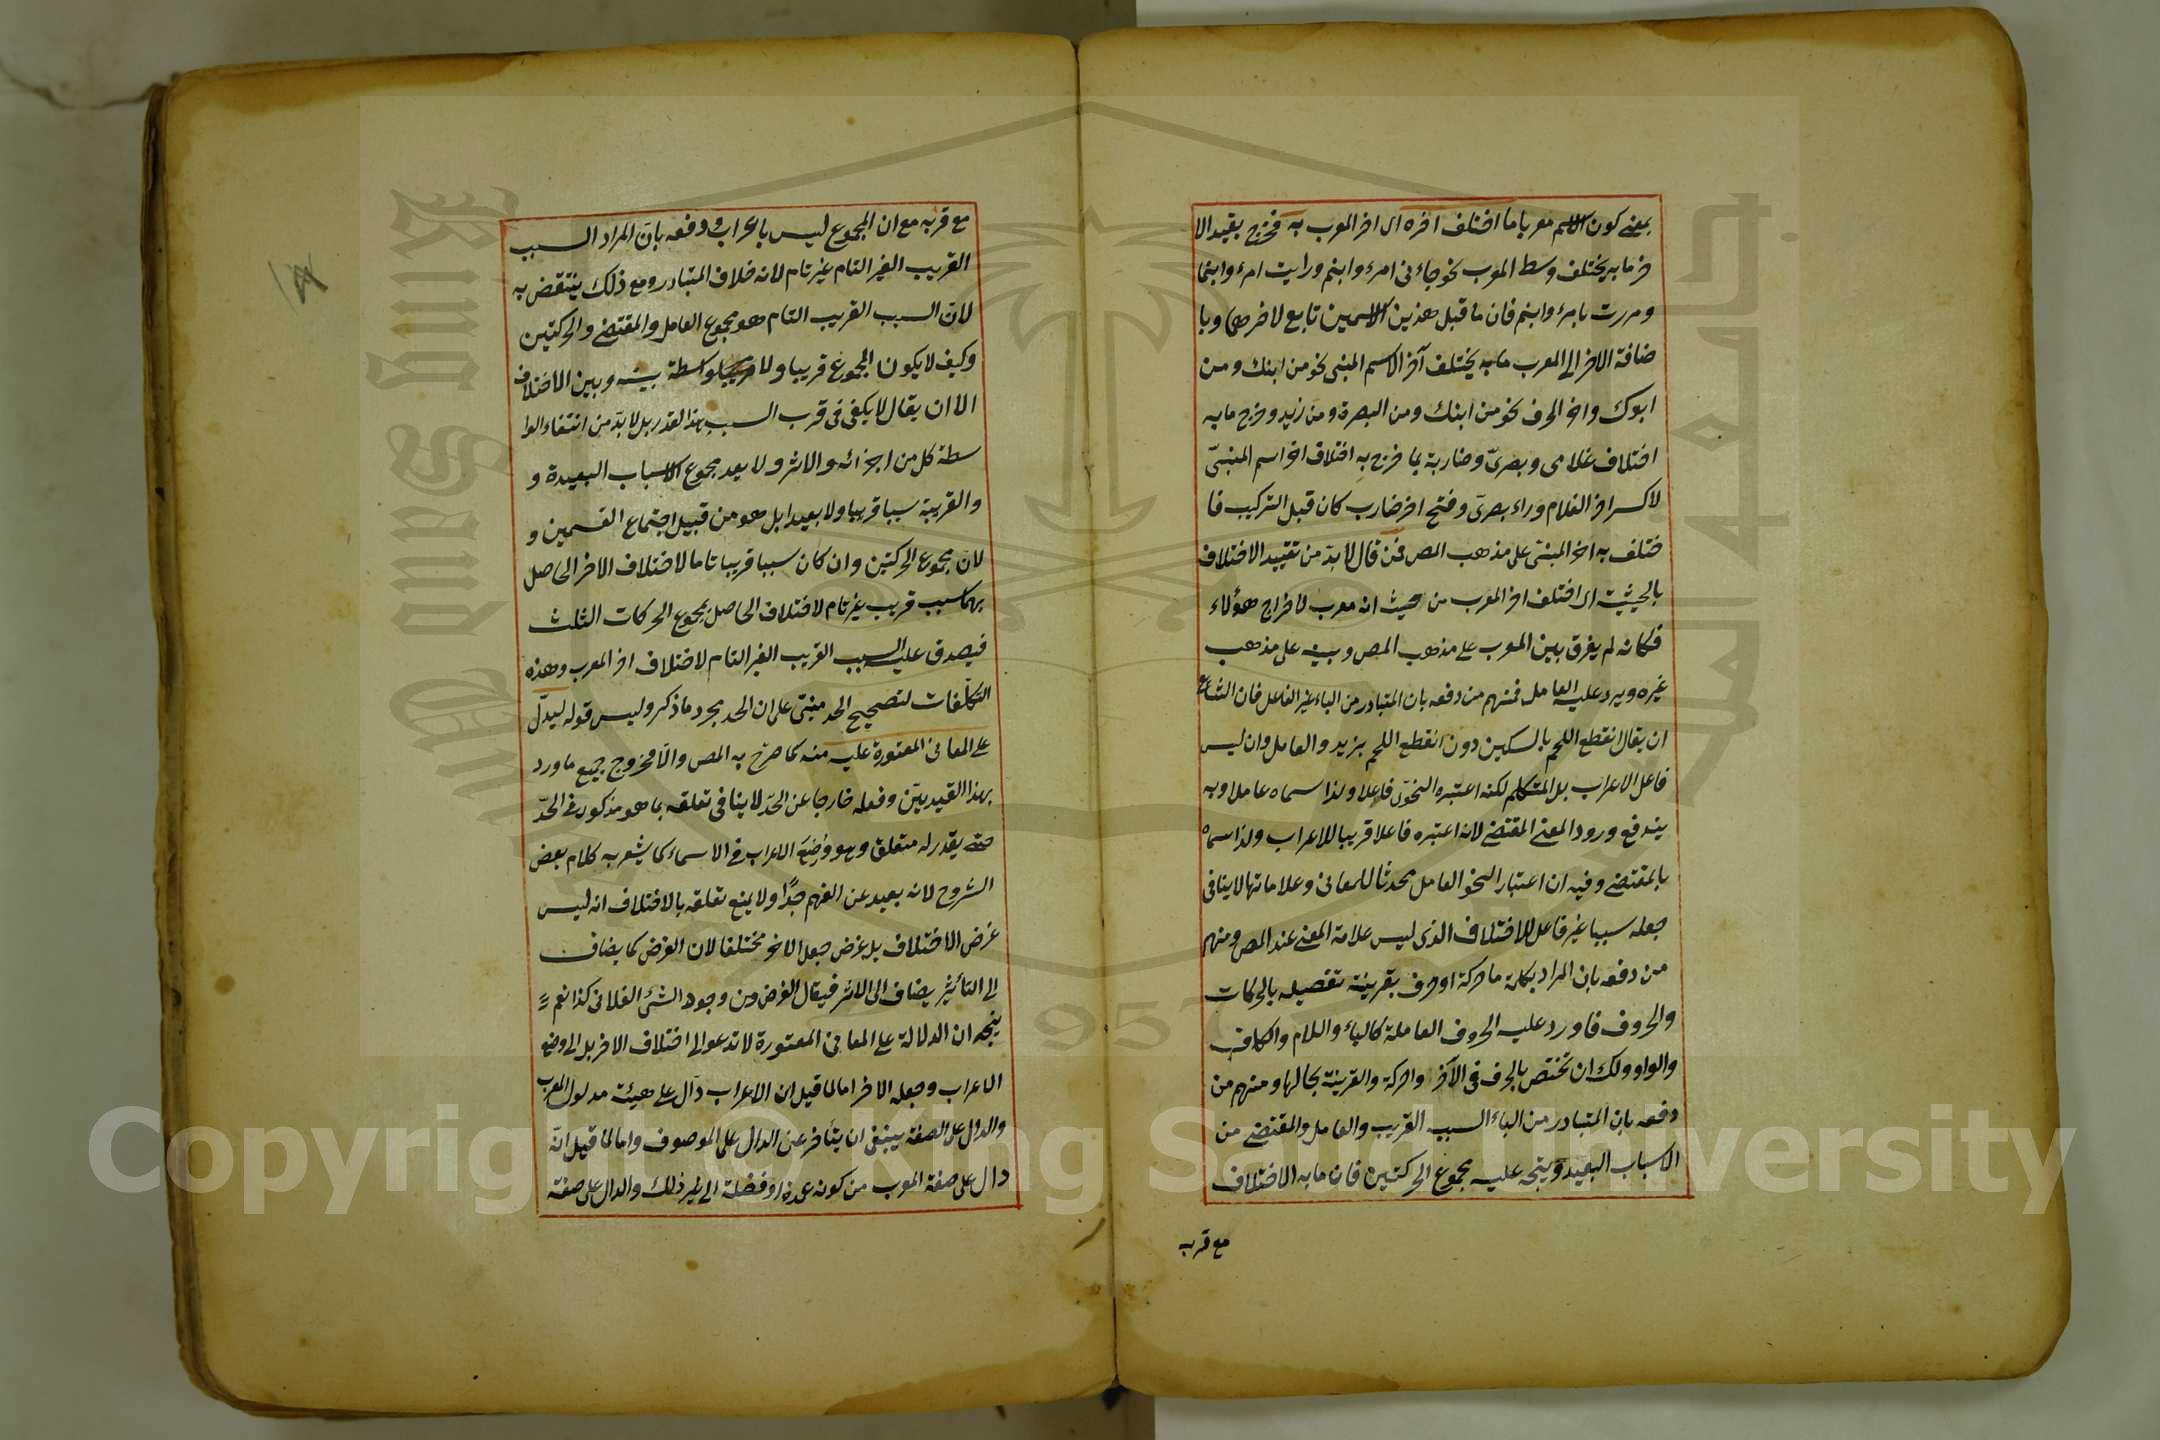 بمعنى كون الاسم معربا ما اختلف اخره اى اخر المعرب به فخرج بقيد الا
خر ما به يختلف وسط المعرب نحو جاءنى امرء وابنم ورايت امرء وابنما
ومررت بامرء وابنم فان ما قبل هذين الاسمين تابع لاخرهما وبا
ضافة الاخر الى المعرب ما به يختلف آخر الاسم المبنى نحو من ابنك ومن
ابوك واخر الحرف نحو من ابنك ومن البصرة ومن زيد وخرج ما به
اختلاف غلامى وبصرىّ وضاربة بما خرج به اختلاف اخر اسم المبنىّ
لا كسر اخر الغلام وراء بصرىّ وفتح اخر ضارب كان قبل التركيب فا
ختلف به اخر المبنىّ على مذهب المص فمن قال لا بدّ من تقييد الاختلاف
بالحيثية اى اختلف اخر المعرب من حيث انه معرب لاخراج هؤلاء
فكانه لم يفرق بين المعرب على مذهب المص وبينه على مذهب
غيره ويرد عليه العامل فمنهم من دفعه بان المتبادر من الباء غير الفاعل فان الشائع
ان يقال انقطع اللحم بالسكين دون انقطع اللحم بزيد والعامل وان ليس
فاعل الاعراب بل المتكلم لكنه اعتبره النحوىّ فاعلا ولذا سماه عاملا وبه
يندفع ورود المعنى المقتضى لانه اعتبره فاعلا قريبا للاعراب ولذا سماه
بالمقتضى وفيه ان اعتبار النحو العامل محدثا للمعانى وعلاماتها لا ينافى
جعله سببا غير فاعل للاختلاف الذى ليس علامة المعنى عند المص ومنهم
من دفعه بان المراد بكلمة ما حركة او حرف بقرينة تفصيله بالحركات
والحروف فاورد عليه الحروف العاملة كالباء واللام والكاف
والواو ولك ان تختص بالحرف فى الآخر والحركة والقرينة بحالها ومنهم من
دفعه بان المتبادر من الباء السبب القريب والعامل والمقتضى من
الاسباب البعيدة ويتجه عليه مجموع الحركتين فان ما به الاختلاف
مع قربه
مع قربه مع ان المجموع ليس باعراب ودفعه بانّ المراد السبب
القريب الغير التام غير تام لانه خلاف المتبادر ومع ذلك ينتقض به
لانّ السبب القريب التام هو مجموع العامل والمقتضى والحركتين
وكيف لا يكون المجموع قريبا ولا واسطة بينه وبين الاختلاف
الا ان يقال لا يكفى فى قرب السبب هذا القدر بل لا بدّ من انتفاء الوا
سطة كل من اجزائه والاثر ولا يعد مجموع الاسباب البعيدة و
والقريبة سببا قريبا ولا بعيدا بل هو من قبيل اجتماع القسمين و
لانّ مجموع الحركتين وان كان سببا قريبا تاما لاختلاف الاخر الحاصل
بهما سبب قريب غير تام لاختلاف الحاصل بمجموع الحركات الثلث
فيصدق عليه السبب القريب الغير التام لاختلاف اخر المعرب وهذه
التكلّفات لتصحيح الحد مبنىّ على ان الحد مجرد ما ذكر وليس قوله ليدلّ
على المعانى المعتورة عليه منه كما صرّح به المص والّا فخروج جميع ما ورد
بهذا القيد بيّن وفعله خارجا عن الحدّ لا ينافى تعلقه بما هو مذكور فى الحدّ
حتى يقدر له متعلق وهو وُضِعَ الاعراب فى الاسماء كما يشعر به كلام بعض
الشروح لانه بعيد عن الفهم جدًّا ولا يمنع تعلقه بالاختلاف انه ليس
غرض الاختلاف بل غرض جعل الاخر مختلفا لان الغرض كما يضاف
الى التأثير يضاف الى الاثر فيقال الغرض من وجود الشئ الفلانى كذا نعم
يتجه ان الدلالة على المعانى المعتورة لا تدعو الى اختلاف الاخر بل الى وضع
الاعراب وجعله الاخر اما لما قيل ان الاعراب دالّ على هيئة مدلول المعرب
والدال على الصفة ينبغى ان يتأخر عن الدال على الموصوف واما لما قيل انّه
دال على صفة المعرب من كونه عمدة او فضلة الى غير ذلك والدال على صفة